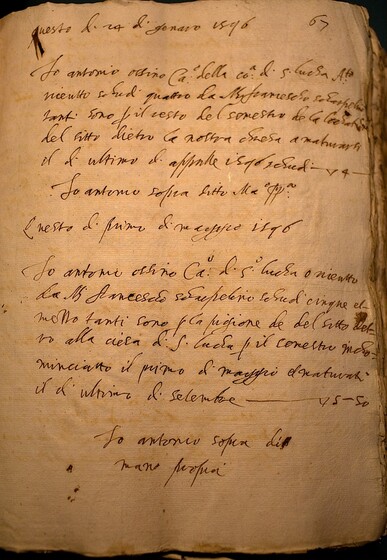 questo di 24 di genaro 1596 67
Io antonio orsino Ca.º della cõ.ª di s. lucha
riceuuto scudi quattro da M. francescho scharpelino
tanti sono p il resto del semestro de la
del sitto dietro la nostra chiesa a maturarsi
il di ultimo di apprille 1596 scudi — ▽ 4 —
Io antonio sopra ditto
Questo di primo di maggio 1596
Io antonio orsino Ca.º di s.º lucha o riceutto
da M. francescho scharpelino scudi cinque et
mezzo tanti sono p la pigione de del sitto
alla ciesa di S. lucha p il semestro
minciatto il primo di maggio et maturati
il di ultimo di setembre — ▽ 5 - 50
Io antonio sopra di
mano propria